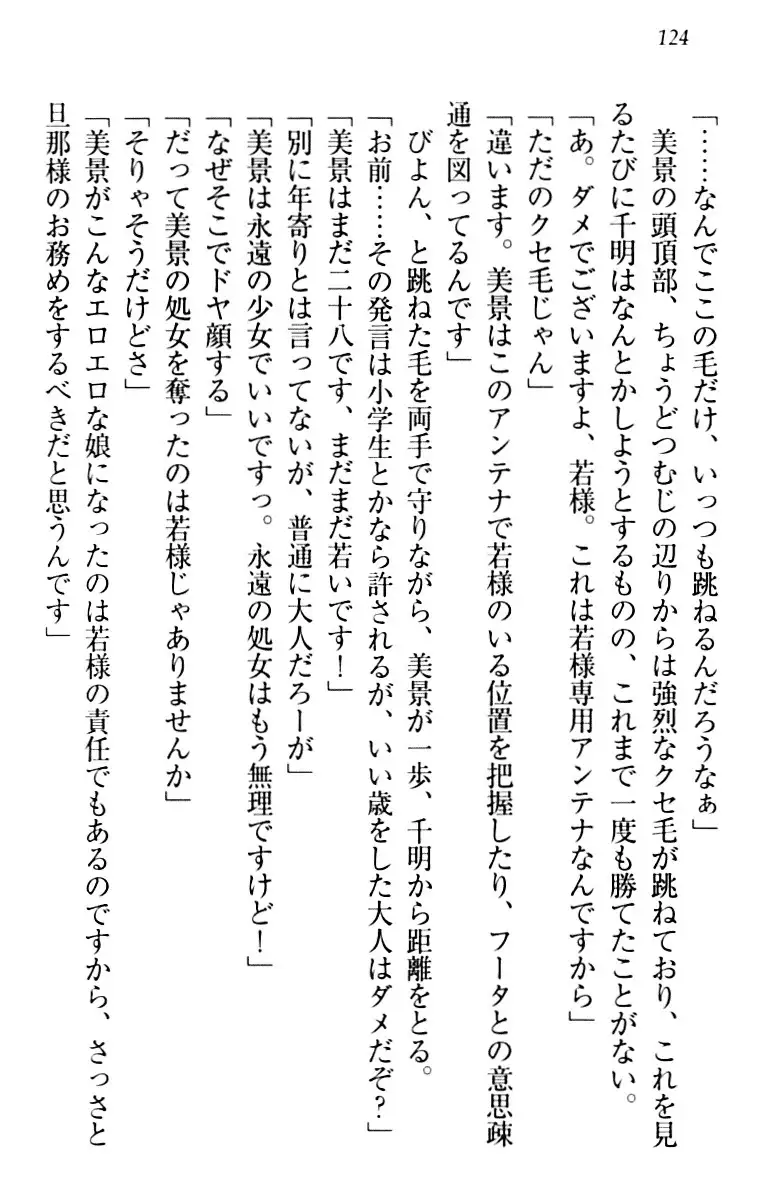 124
「……なんでここの毛だけ、いっつも跳ねるんだろうなぁ」
　美景の頭頂部、ちょうどつむじの辺りからは強烈なクセ毛が跳ねており、これを見
るたびに千明はなんとかしようとするものの、これまで一度も勝てたことがない。
「あ。ダメでございますよ、若様。これは若様専用アンテナなんですから」
「ただのクセ毛じゃん」
「違います。美景はこのアンテナで若様のいる位置を把握したり、フータとの意思疎
通を図ってるんです」
　びよん、と跳ねた毛を両手で守りながら、美景が一歩、千明から距離をとる。
「お前……その発言は小学生とかなら許されるが、いい歳をした大人はダメだぞ？」
「美景はまだ二十八です、まだまだ若いです！」
「別に年寄りとは言ってないが、普通に大人だろーが」
「美景は永遠の少女でいいですっ。永遠の処女はもう無理ですけど！」
「なぜそこでドヤ顔する」
「だって美景の処女を奪ったのは若様じゃありませんか」
「そりゃそうだけどさ」
「美景がこんなエロエロな娘になったのは若様の責任でもあるのですから、さっさと
旦那様のお務めをするべきだと思うんです」